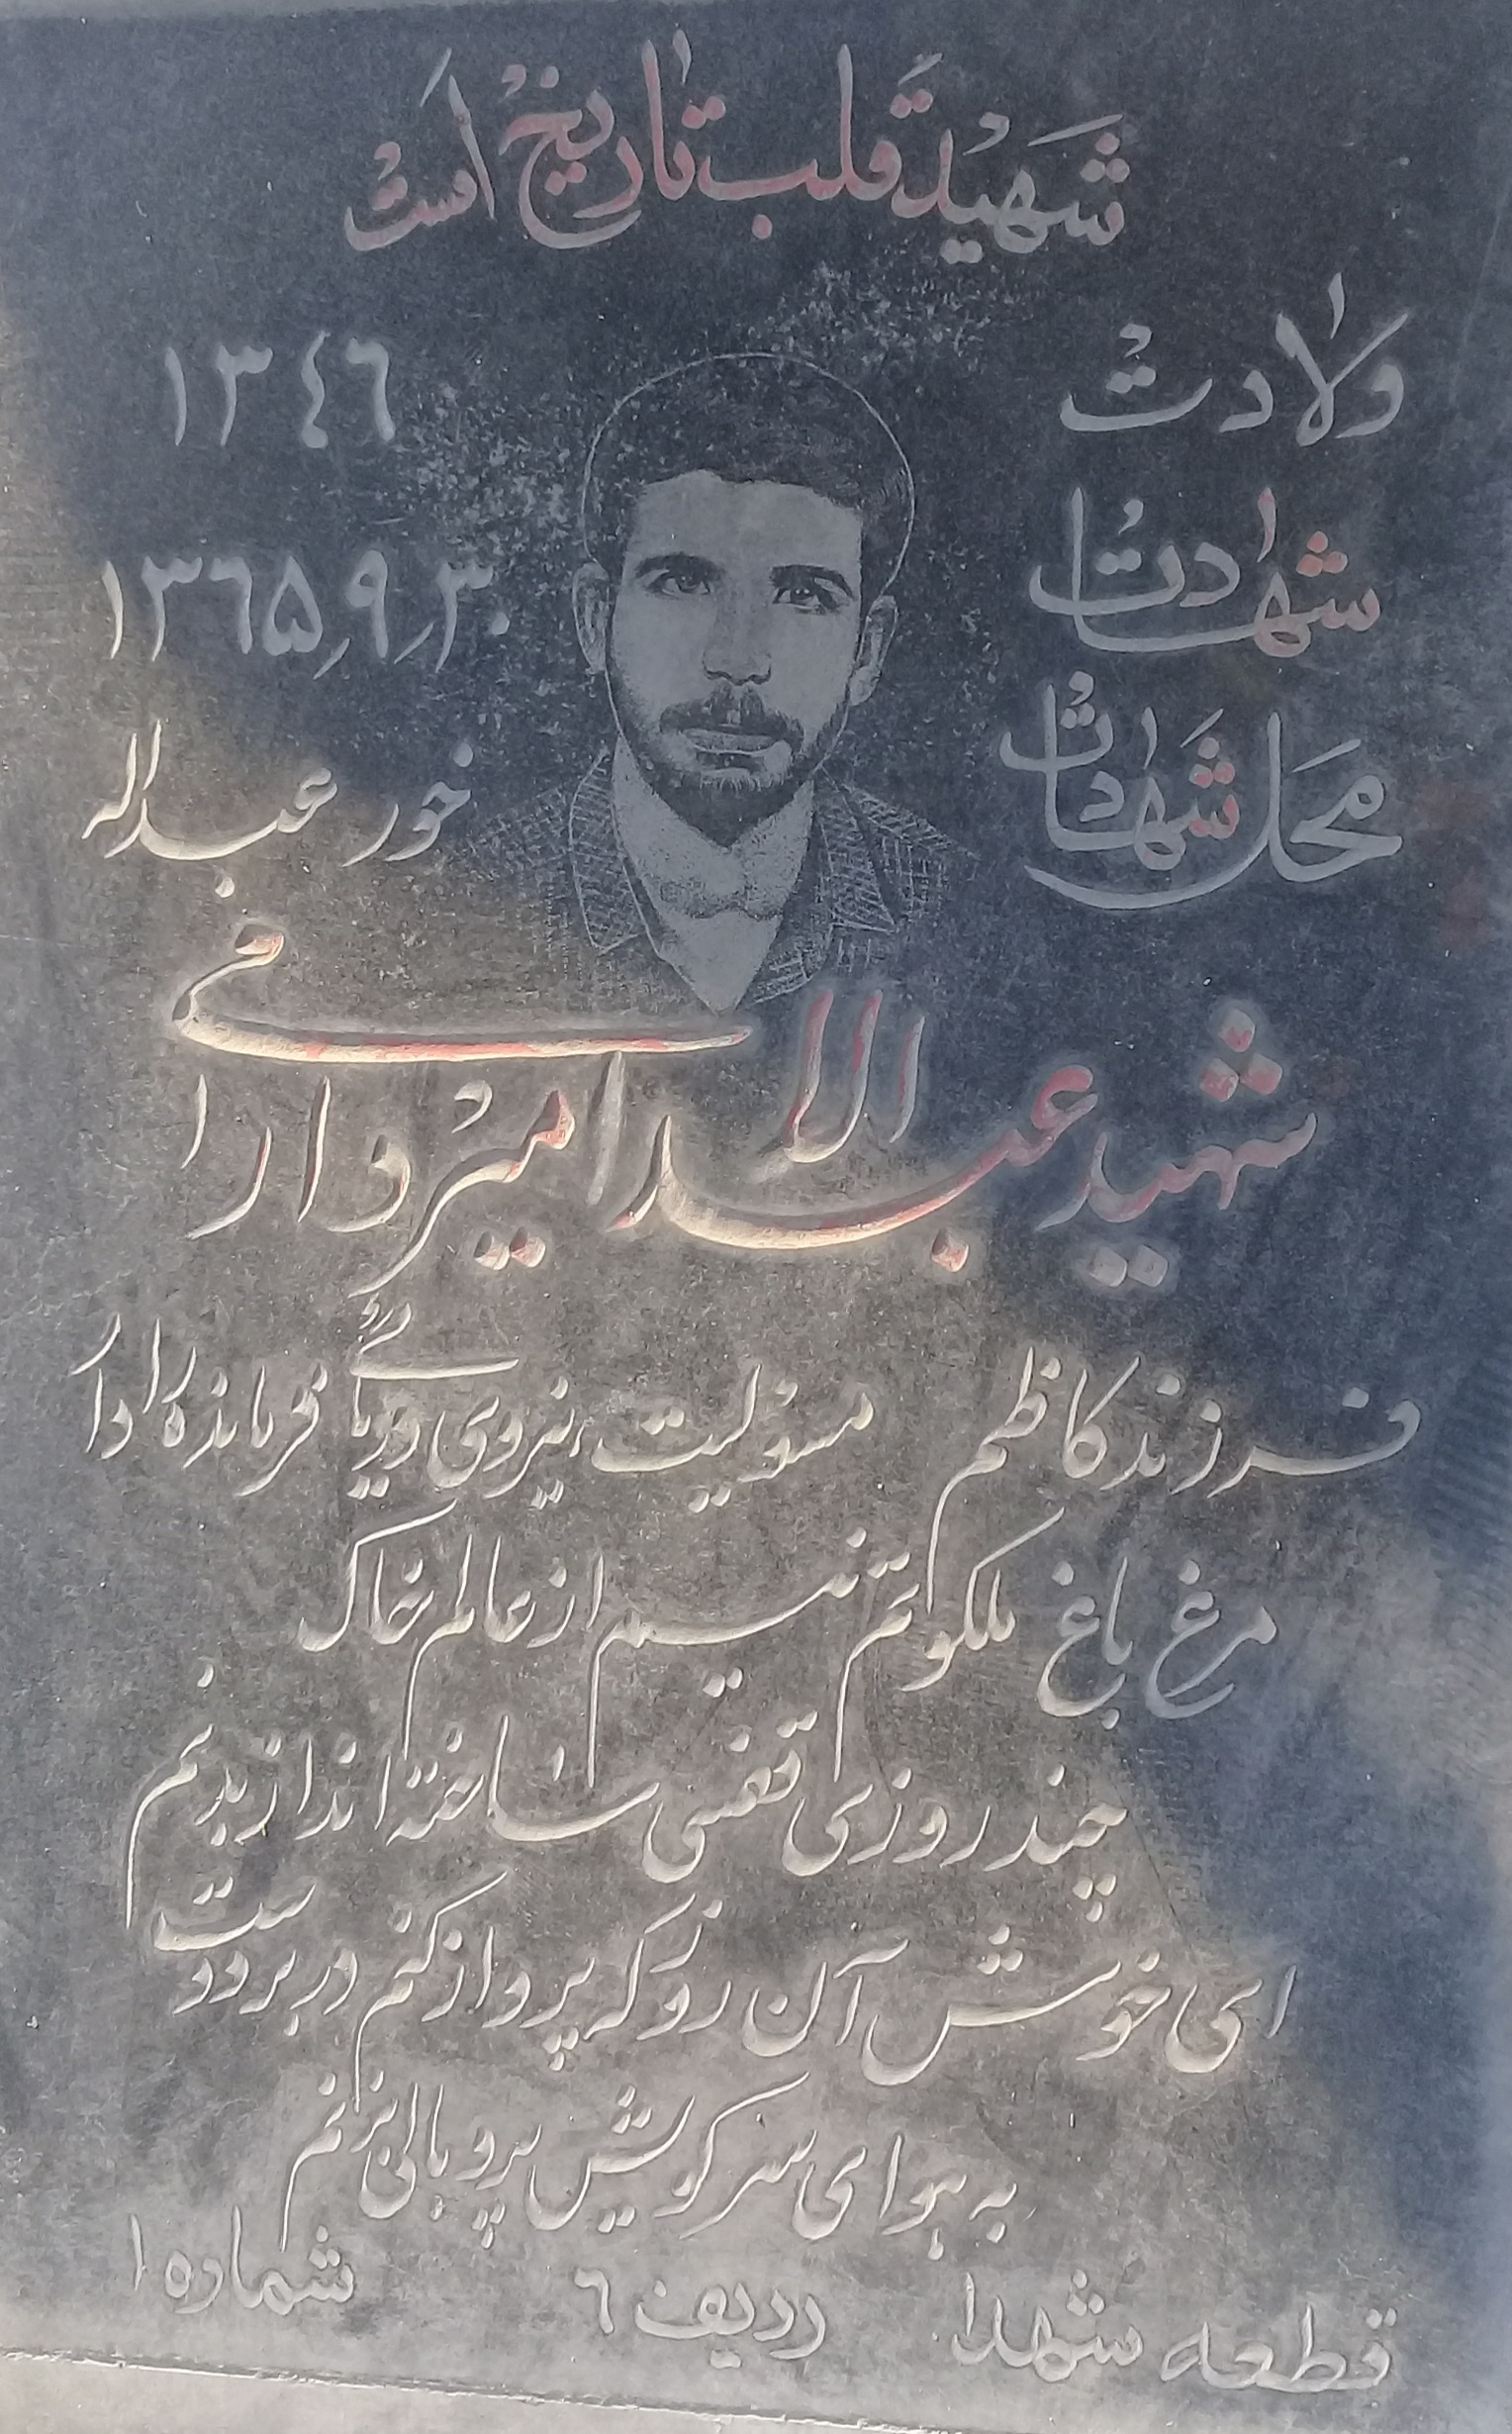 شهید قلب تاریخ است
ولادت ١٣٤٦
شهادت ١٣٦٥٫٩٫٣٠
محل شهادت خور عبداله
شهید عبدالامیر وارا فی
فرزند کاظم مسؤلیت نیروی دریائی فرمانده را دارا
مرغ باغ ملکوتم نیم از عالم خاک
چند روزی قفسی ساخته اند از بدنم
ای خوش آن روز که پرواز کنم در بر دوست
به هوای سر کویش پر و بالی بزنم
قطعه شهدا ردیف ٦ شماره ١